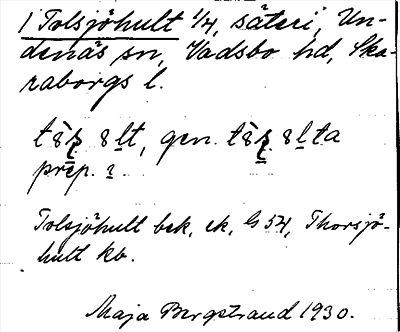 1 Tolsjöhult 1/4, säteri, Un-
denäs sn, Vadsbo hd, Ska-
raborgs l.
gen.
prep. i.
Tolsjöhult bek, ek, G 54, Thorsjö-
hult kb.
Maja Bergstrand 1930.